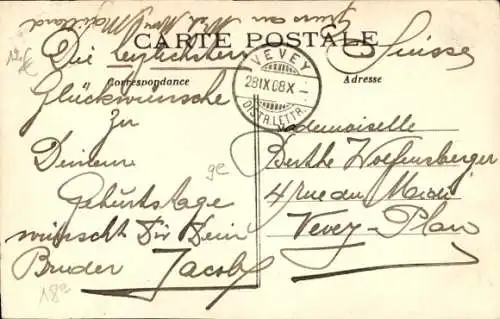 Gruss an
CARTE POSTALE
Suisse
Correspondance
Adresse
Die herzlichsten
Glückwünsche
zu
Deinem
Geburtstage
wünscht Dir Dein
Bruder Jacob
VEVEY
28 IX 08 X
DISTR. LETTR.
Mademoiselle
Berthe Wolfensberger
4 rue du Midi
Vevey-Plan
18e
ge